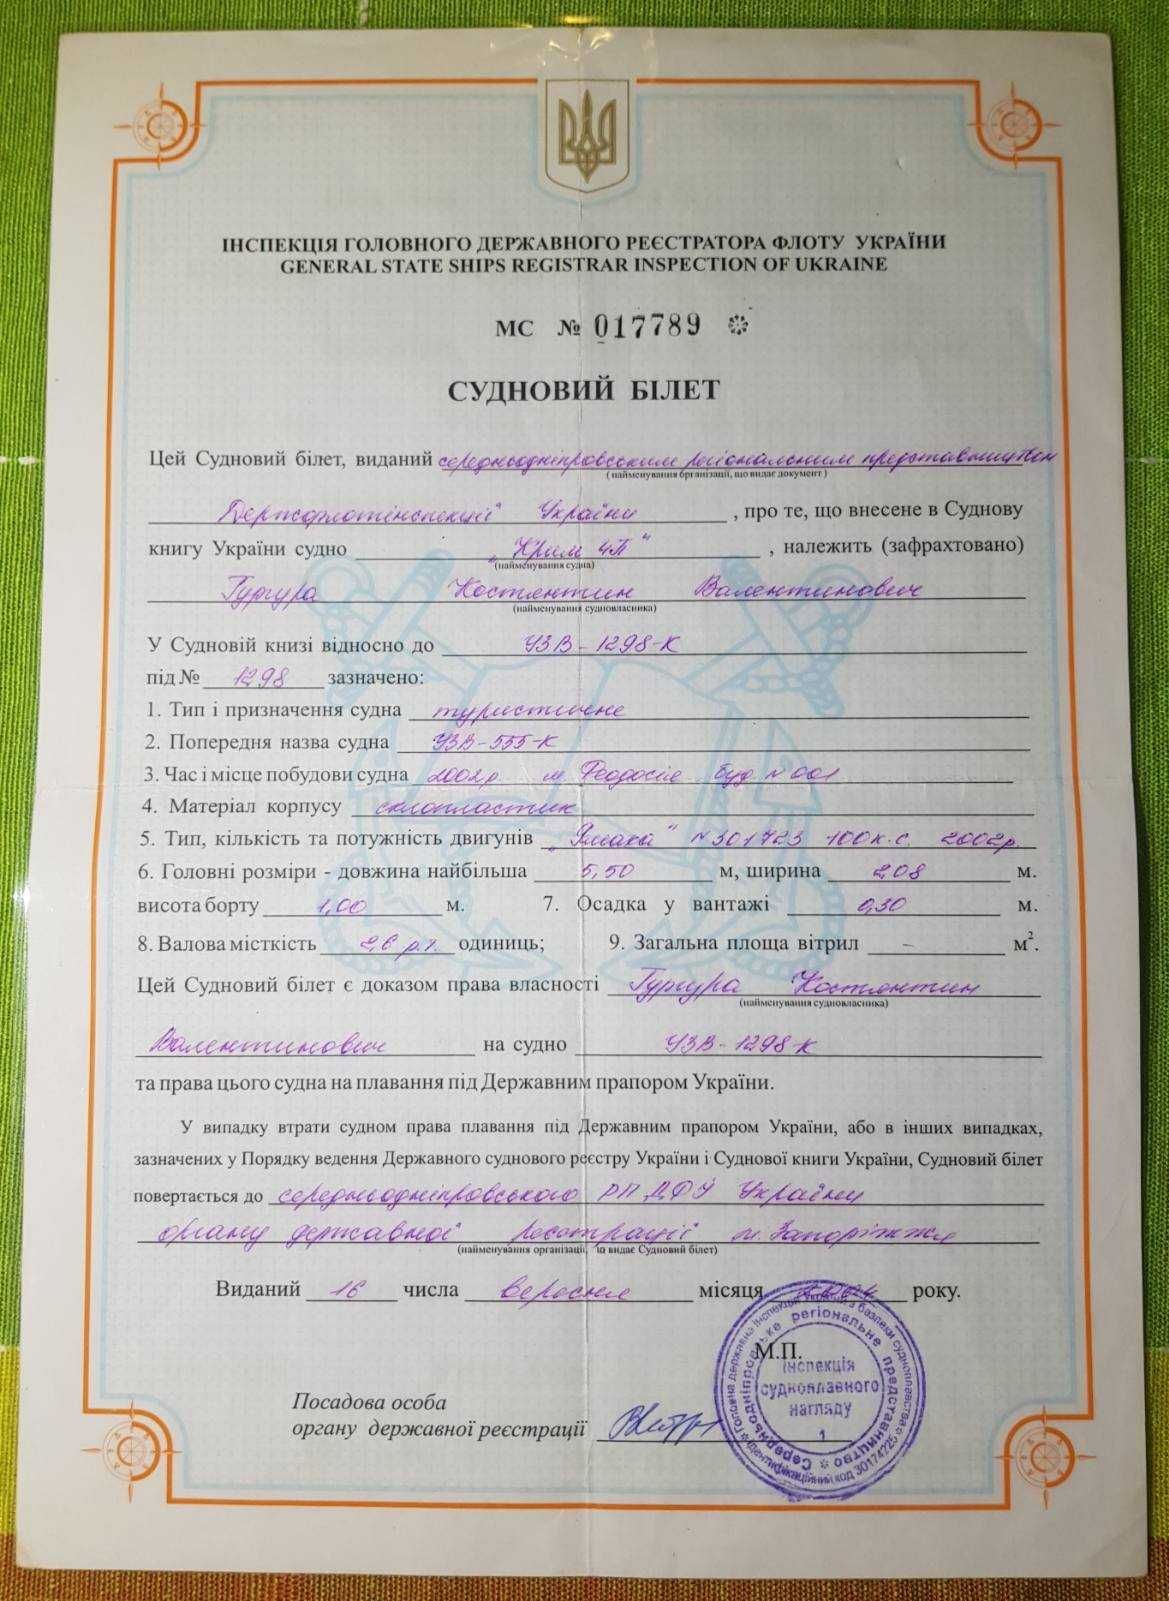 ІНСПЕКЦІЯ ГОЛОВНОГО ДЕРЖАВНОГО РЕЄСТРАТОРА ФЛОТУ УКРАЇНИ
GENERAL STATE SHIPS REGISTRAR INSPECTION OF UKRAINE
МС № 017789
СУДНОВИЙ БІЛЕТ
Цей Судновий білет, виданий середньодніпровським регіональним представництвом
(найменування організації, що видає документ)
Держфлотінспекції України, про те, що внесене в Суднову
книгу України судно „Крим 4П", належить (зафрахтовано)
(найменування судна)
Гургура Костянтин Валентинович
(найменування судновласника)
У Судновій книзі відносно до УЗВ-1298-К
під № 1298 зазначено:
1. Тип і призначення судна туристичне
2. Попередня назва судна УЗВ-555-К
3. Час і місце побудови судна 2002р. м. Феодосія буд №001
4. Матеріал корпусу склопластик
5. Тип, кількість та потужність двигунів „Ямаха" №301723 100к.с. 2002р.
6. Головні розміри - довжина найбільша 5,50 м, ширина 2,08 м.
висота борту 1,00 м. 7. Осадка у вантажі 0,30 м.
8. Валова місткість 2,6 р.т. одиниць; 9. Загальна площа вітрил – м².
Цей Судновий білет є доказом права власності Гургура Костянтин
(найменування судновласника)
Валентинович на судно УЗВ-1298-К
та права цього судна на плавання під Державним прапором України.
У випадку втрати судном права плавання під Державним прапором України, або в інших випадках,
зазначених у Порядку ведення Державного суднового реєстру України і Суднової книги України, Судновий білет
повертається до середньодніпровського РП ДФІ України
органу державної реєстрації м. Запоріжжя
(найменування організації, що видає Судновий білет)
Виданий 16 числа вересня місяця року.
М.П.
Посадова особа
органу державної реєстрації
Головна державна інспекція України з безпеки судноплавства
Середньодніпровське регіональне представництво
Ідентифікаційний код 30174225
Інспекція
судноплавного
нагляду
1